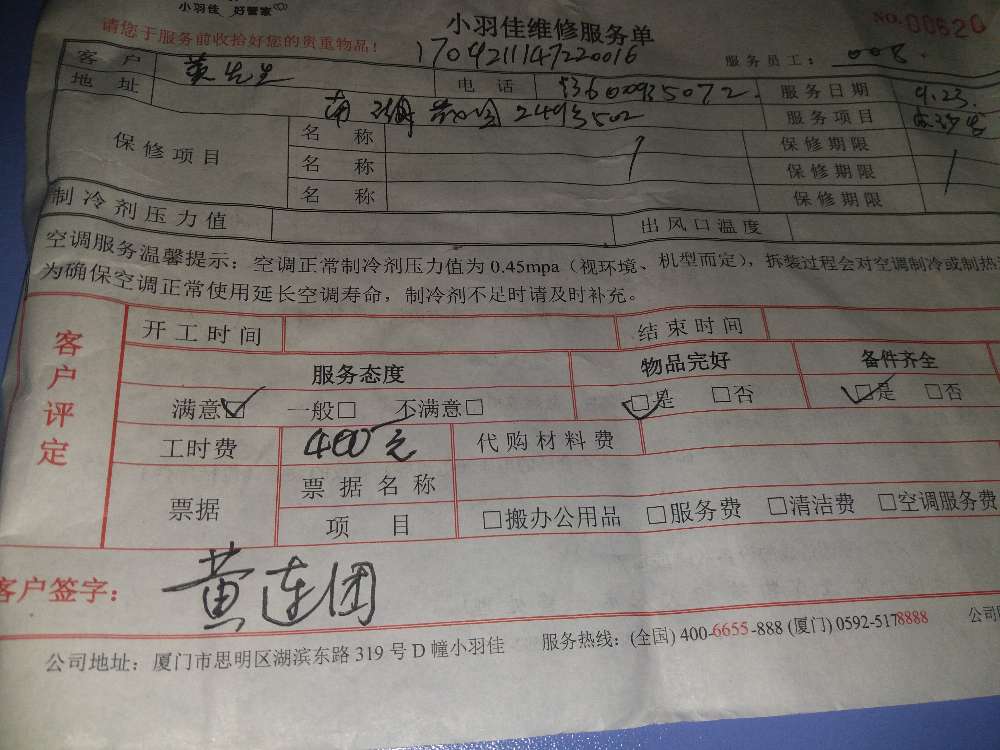 小羽佳 好管家
请您于服务前收拾好您的贵重物品！
小羽佳维修服务单
NO.00620
1704211147220016
服务员工： 008.
客户 黄先生 电话 服务日期 9.23.
地址 服务项目
保修项目 名称 保修期限
名称 保修期限
名称 保修期限
制冷剂压力值 出风口温度
空调服务温馨提示：空调正常制冷剂压力值为0.45mpa（视环境、机型而定），拆装过程会对空调制冷或制热
为确保空调正常使用延长空调寿命，制冷剂不足时请及时补充。
客户评定
开工时间 结束时间
服务态度 物品完好 备件齐全
满意☑ 一般□ 不满意□ ☑是 □否 ☑是 □否
工时费 400元 代购材料费
票据 票据名称
项目 □搬办公用品 □服务费 □清洁费 □空调服务费
客户签字： 黄连团
公司地址：厦门市思明区湖滨东路319号D幢小羽佳 服务热线：(全国) 400-6655-888 (厦门) 0592-5178888 公司